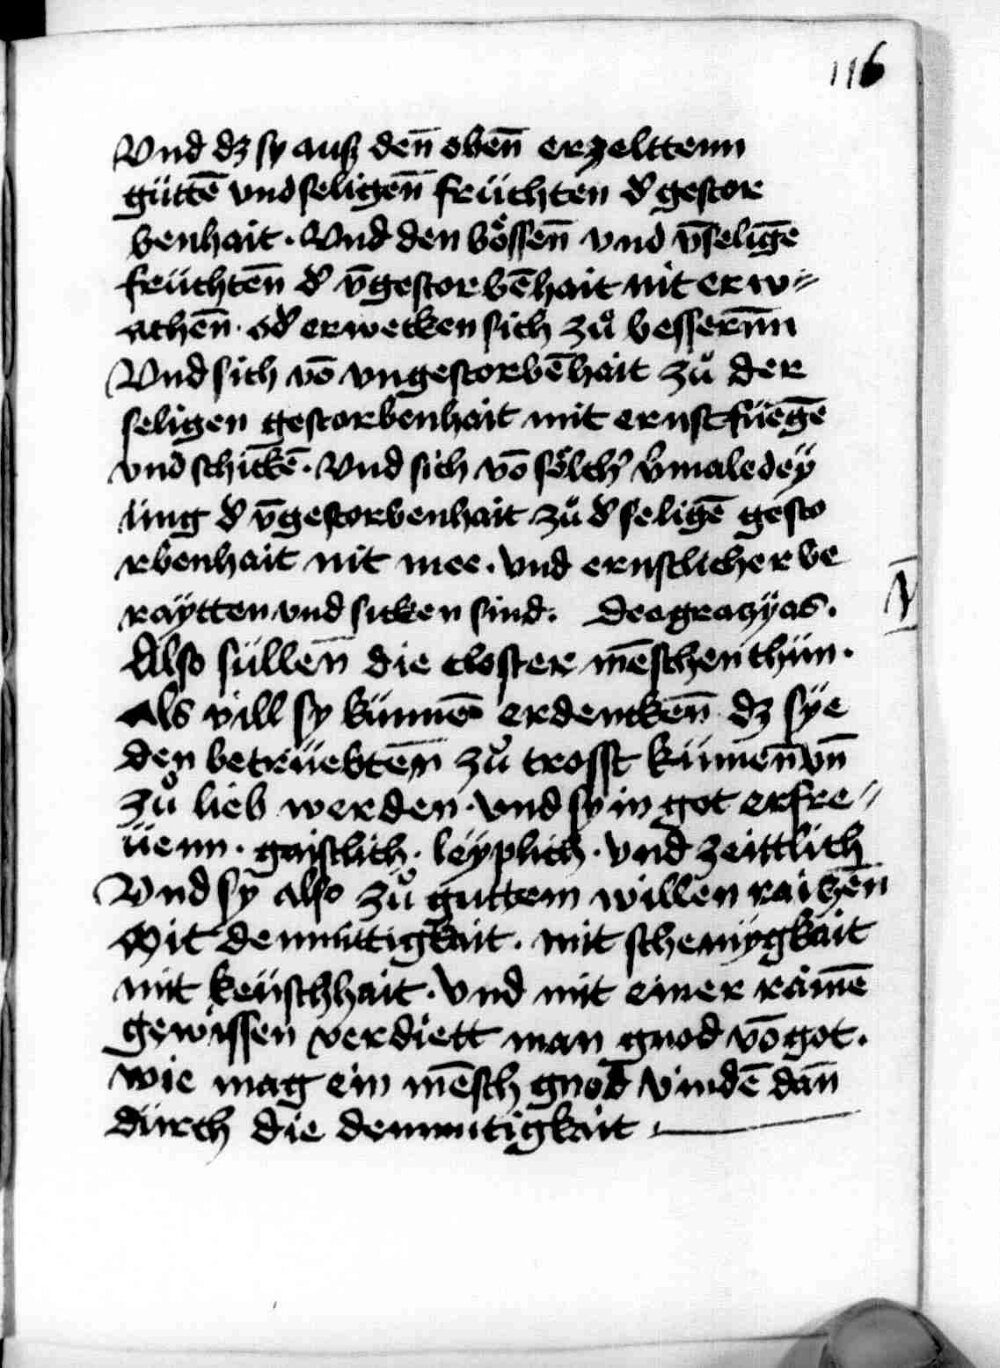 116
Vnd dz sy auß den̄ oben̄ erzelttenn
güttē vnd seligen̄ früchten d̕ gestor
benhait · Vnd den bo̊ssen̄ vnd v̄seligē
früchten̄ d̕ v̄gestorbēhait nit erw〃
achen̄ · od̕ erwecken sich zů besserūn
Vnd sich vō vngestorbēhait zů der
seligen gestorbenhait mit ernst füegē
vnd schickē · Vnd sich vō sölch̕ v̕maledeÿ
üng d̕ v̄gestorbenhait zů d̕ seligē gesto
rbenhait nit mee · vnd ernstlicher be
raÿtten vnd sicken sind · deogracÿas ·
Also süllen̄ die closter mēschen thün ·
Als vill sy künnē erdencken̄ dz sÿe
den betrüebten̄ zů trosst kümen̄ vn̄
zů lieb werden · vnd sy in got erfre〃
üenn · gaistlich · leÿplich · vnd zeittlich
Vnd sÿ also zů guttem willen raiʒen
Mit demüttigkait · mit schemÿgkait
mit keüschhait · Vnd mit einer rainē
gewissen verdiett man gnod vō got ·
wie mag ein mēsch gnod vindē dan̄
dürch die demmutigkait ·